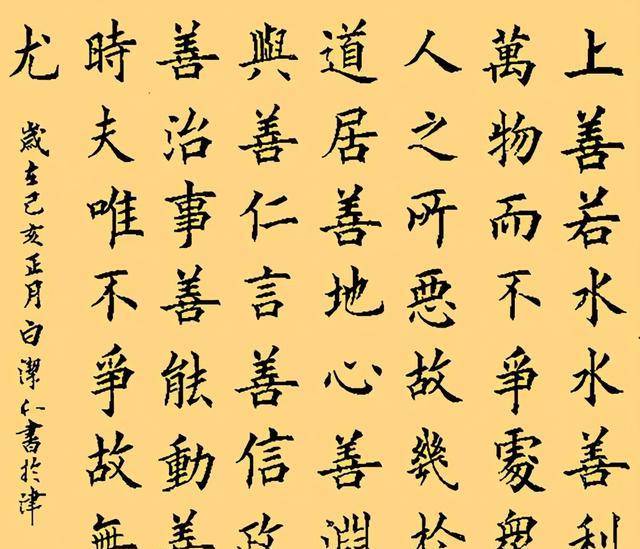 上善若水水善利
萬物而不爭處眾
人之所惡故幾於
道居善地心善淵
與善仁言善信政
善治事善能動善
時夫唯不爭故無
尤
歲在己亥正月白潔仁書於津